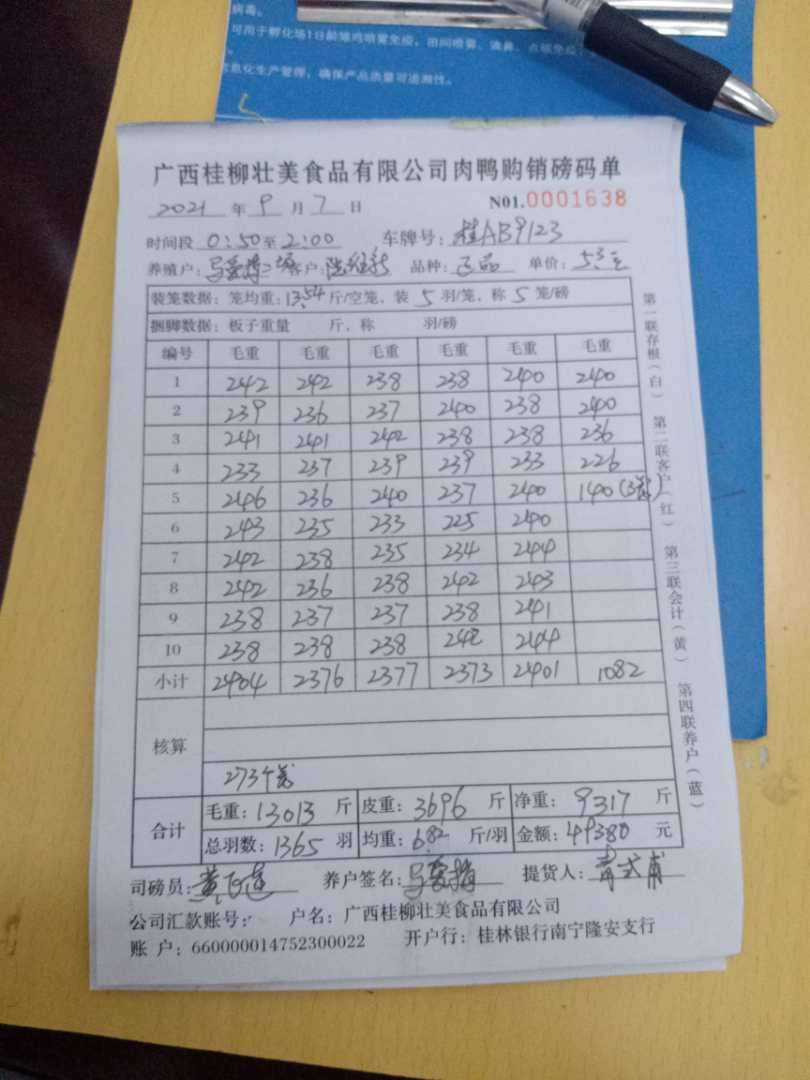 病毒。
可用于孵化场1日龄雏鸡喷雾免疫，田间喷雾、滴鼻、点眼免疫
息化生产管理，确保产品质量可追溯性。
广西桂柳壮美食品有限公司肉鸭购销磅码单
2021 年 9 月 7 日 N01.0001638
时间段 0:50至2:00 车牌号：桂AB9123
养殖户： 客户： 品种：正品 单价：5.3元
装笼数据：笼均重：13.54斤/空笼、装 5 羽/笼、称 5 笼/磅
捆脚数据：板子重量 斤，称 羽/磅
编号 毛重 毛重 毛重 毛重 毛重 毛重
1 242 242 238 238 240 240
2 239 236 237 240 238 240
3 241 241 242 238 238 236
4 233 237 239 239 233 226
5 246 236 240 237 240 140(3笼)
6 243 235 233 225 240
7 242 238 235 234 244
8 242 236 238 242 243
9 238 237 237 238 241
10 238 238 238 242 244
小计 2404 2376 2377 2373 2401 1082
核算
273个笼
合计 毛重：13013 斤 皮重：3696 斤 净重：9317 斤
总羽数：1365 羽 均重：6.82 斤/羽 金额：49380 元
司磅员： 养户签名： 提货人：
公司汇款账号： 户名：广西桂柳壮美食品有限公司
账 户：660000014752300022 开户行：桂林银行南宁隆安支行
第一联存根（白） 第二联客户（红） 第三联会计（黄） 第四联养户（蓝）